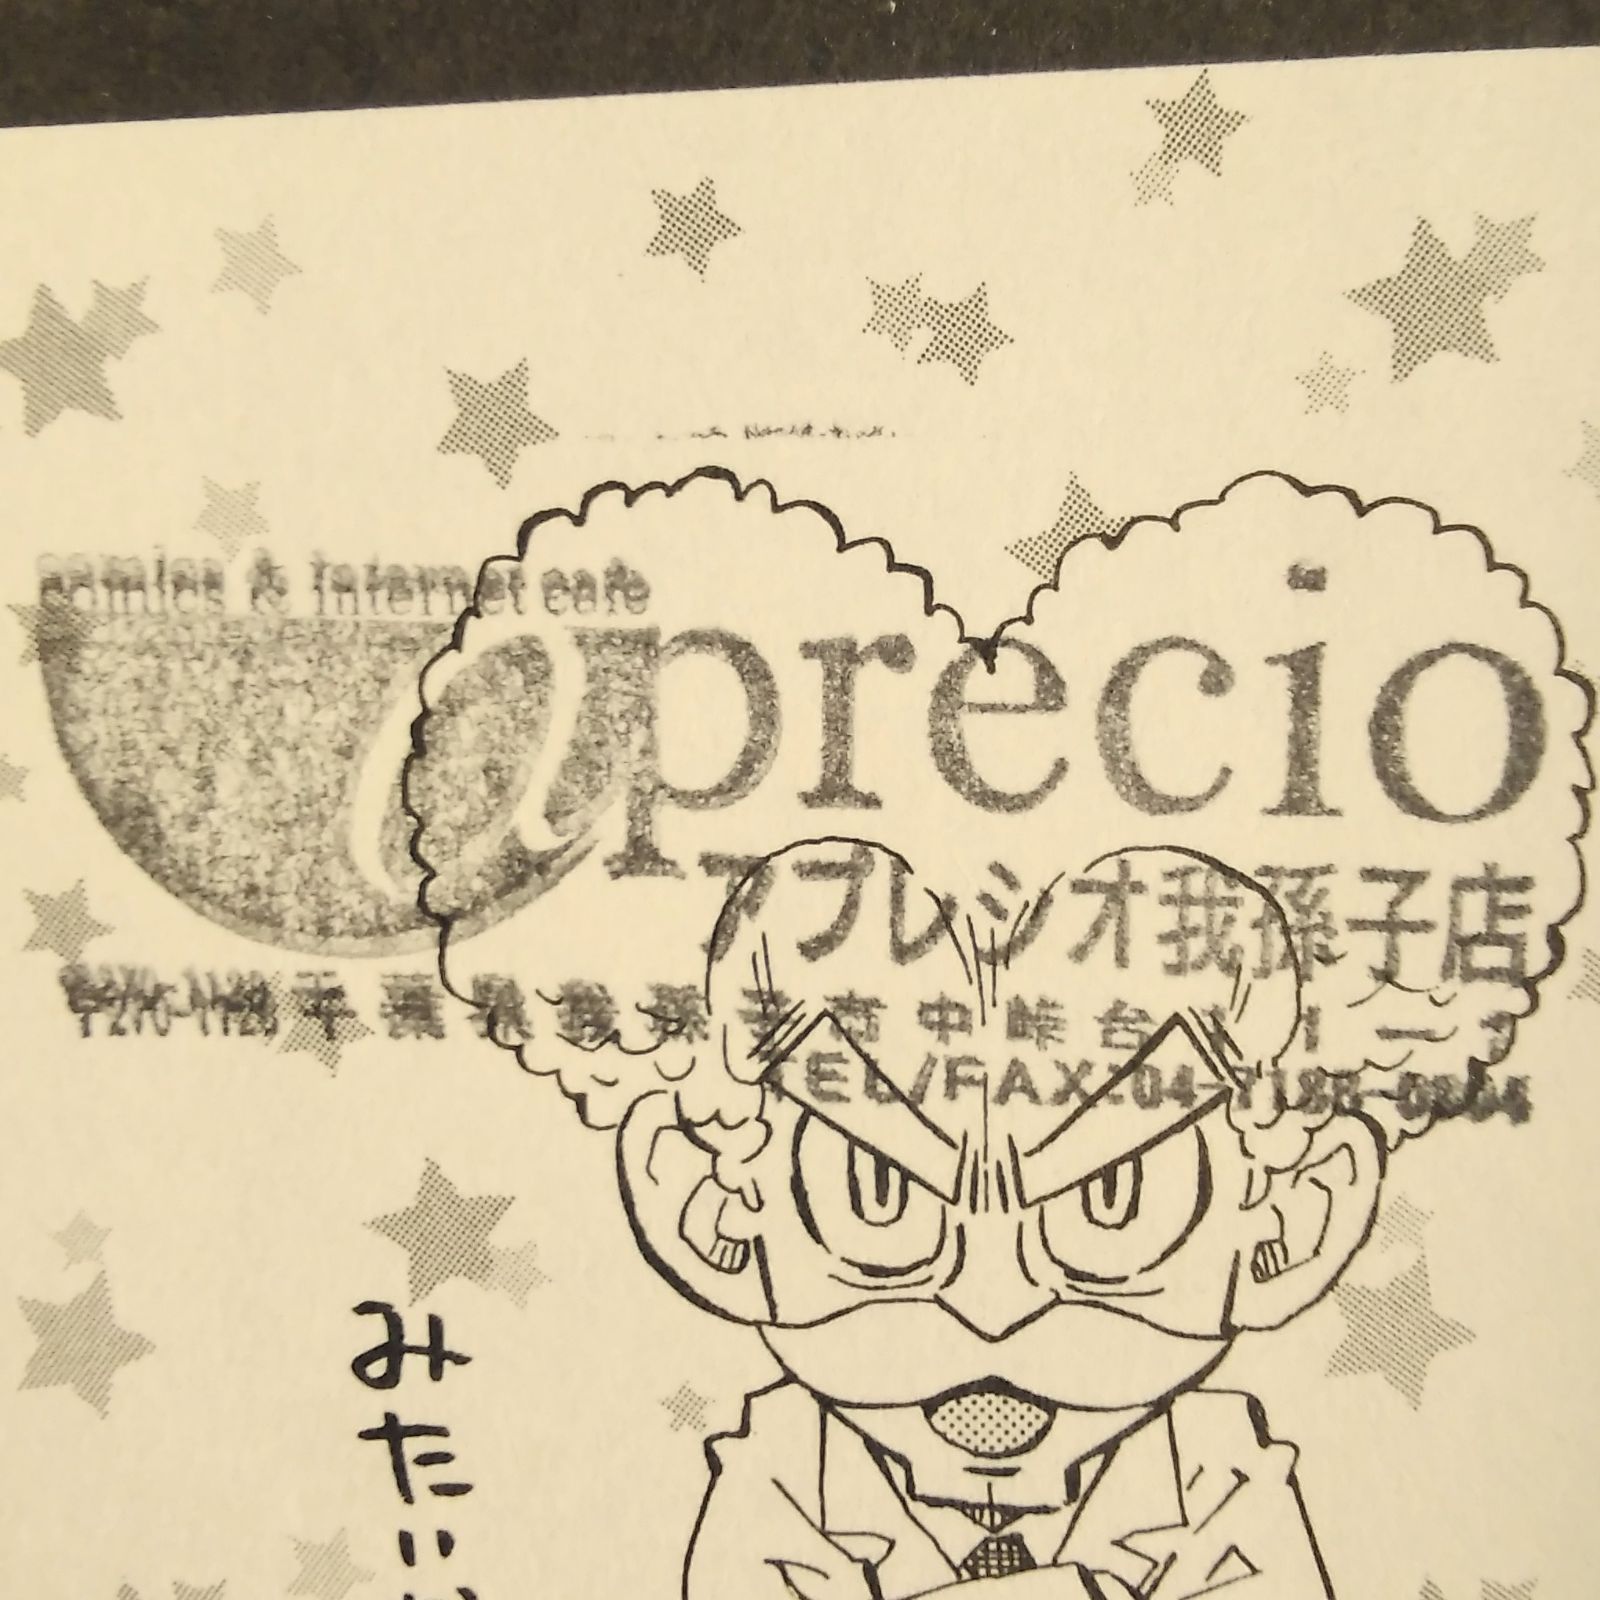 comics & internet cafe
@precio
アプレシオ我孫子店
〒270-1123 千葉県我孫子市中峠台
TEL/FAX:04-7188-
みたい